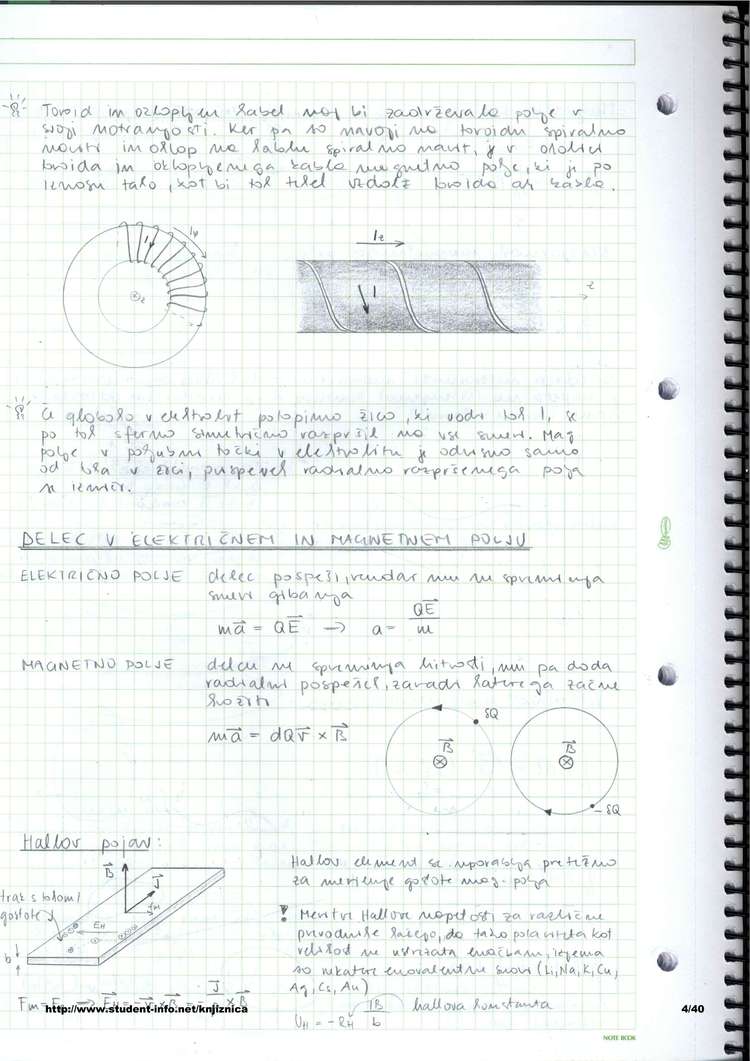 Toroid in oklopljen kabel naj bi zadrževala polje v
svoji notranjosti. Ker pa so navoji na toroidu spiralno
naviti in oklop na kablu spiralno navit, je v okolici
toroida in oklopljenega kabla magnetno polje, ki je po
iznosu tako, kot bi tok tekel vzdolž toroida ali kabla.
I
Iφ
z
Iz
I
z
Če globoko v elektrolit potopimo žico, ki vodi tok I, se
po tok sferno simetrično razprši na vse smeri. Mag
polje v poljubni točki v elektrolitu je odvisno samo
od toka v žici, prispevek radialno razpršenega polja
se izniči.
DELEC V ELEKTRIČNEM IN MAGNETNEM POLJU
ELEKTRIČNO POLJE delec pospeši, vendar mu ne spreminja
smeri gibanja
ma⃗ = QE⃗ → a = QE⃗/m
MAGNETNO POLJE delcu ne spreminja hitrosti, mu pa doda
radialni pospešek, zaradi katerega začne
krožiti
ma⃗ = dQv⃗ × B⃗
δQ
B⃗
B⃗
-δQ
Hallov pojav:
B⃗
J⃗
trak s tokom
gostote J
EH
b
Hallov element se uporablja pretežno
za merjenje gostote mag. polja
! Meritve Hallove napetosti za različne
prevodnike kažejo, da tako polariteta kot
velikost ne ustrezata enačbam, izjema
so nekatere enovalentne snovi (Li, Na, K, Cu,
Ag, Cs, Au)
UH = -RH IB/b hallova konstanta
http://www.student-info.net/knjiznica
4/40
NOTE BOOK